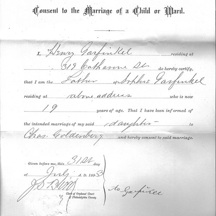 Consent to the Marriage of a Child or Ward.
I, Henry Garfinkel residing at
319 Catharine St do hereby certify,
that I am the Father of Sophie Garfinkel
residing at above address who is now
19 years of age. That I have been informed of
the intended marriage of my said daughter to
Chas Goldenberg and hereby consent to said marriage.
Given before me, this 31st day
of July 1
Garfinkel